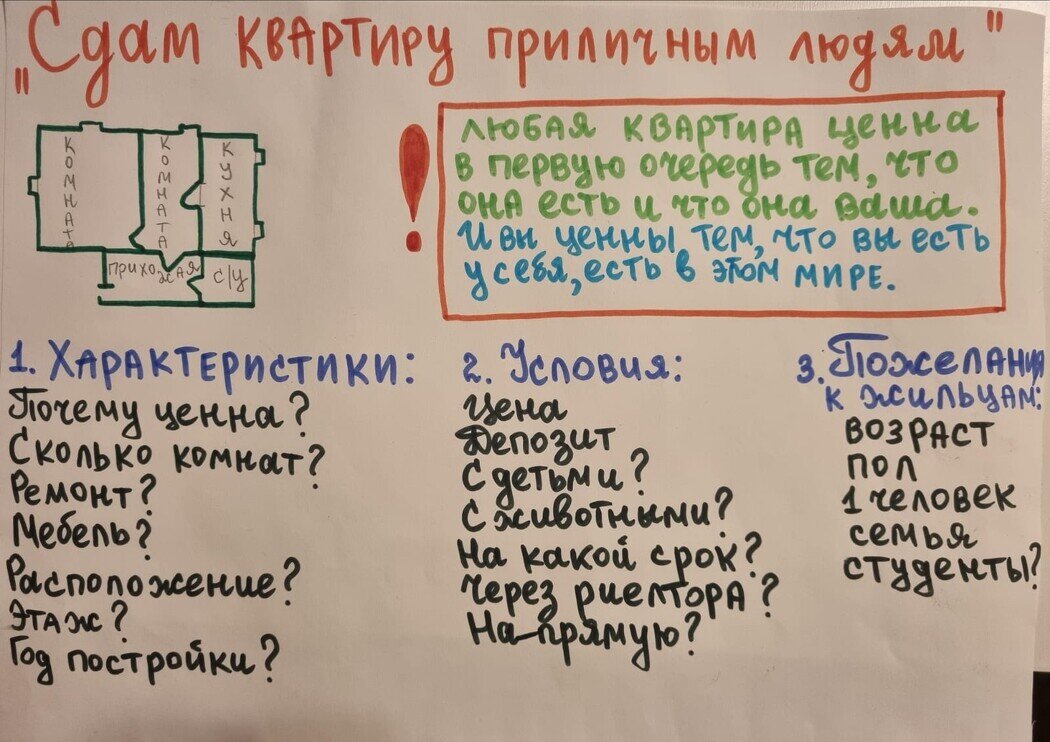 "Сдам квартиру приличным людям"
КОМНАТА
КОМНАТА
КУХНЯ
ПРИХОЖАЯ
с/у
!
Любая квартира ценна
в первую очередь тем, что
она есть и что она ваша.
И вы ценны тем, что вы есть
у себя, есть в этом мире.
1. Характеристики:
Почему ценна?
Сколько комнат?
Ремонт?
Мебель?
Расположение?
Этаж?
Год постройки?
2. Условия:
Цена
Депозит
С детьми?
С животными?
На какой срок?
Через риелтора?
На-прямую?
3. Пожелания
к жильцам:
возраст
пол
1 человек
семья
студенты?